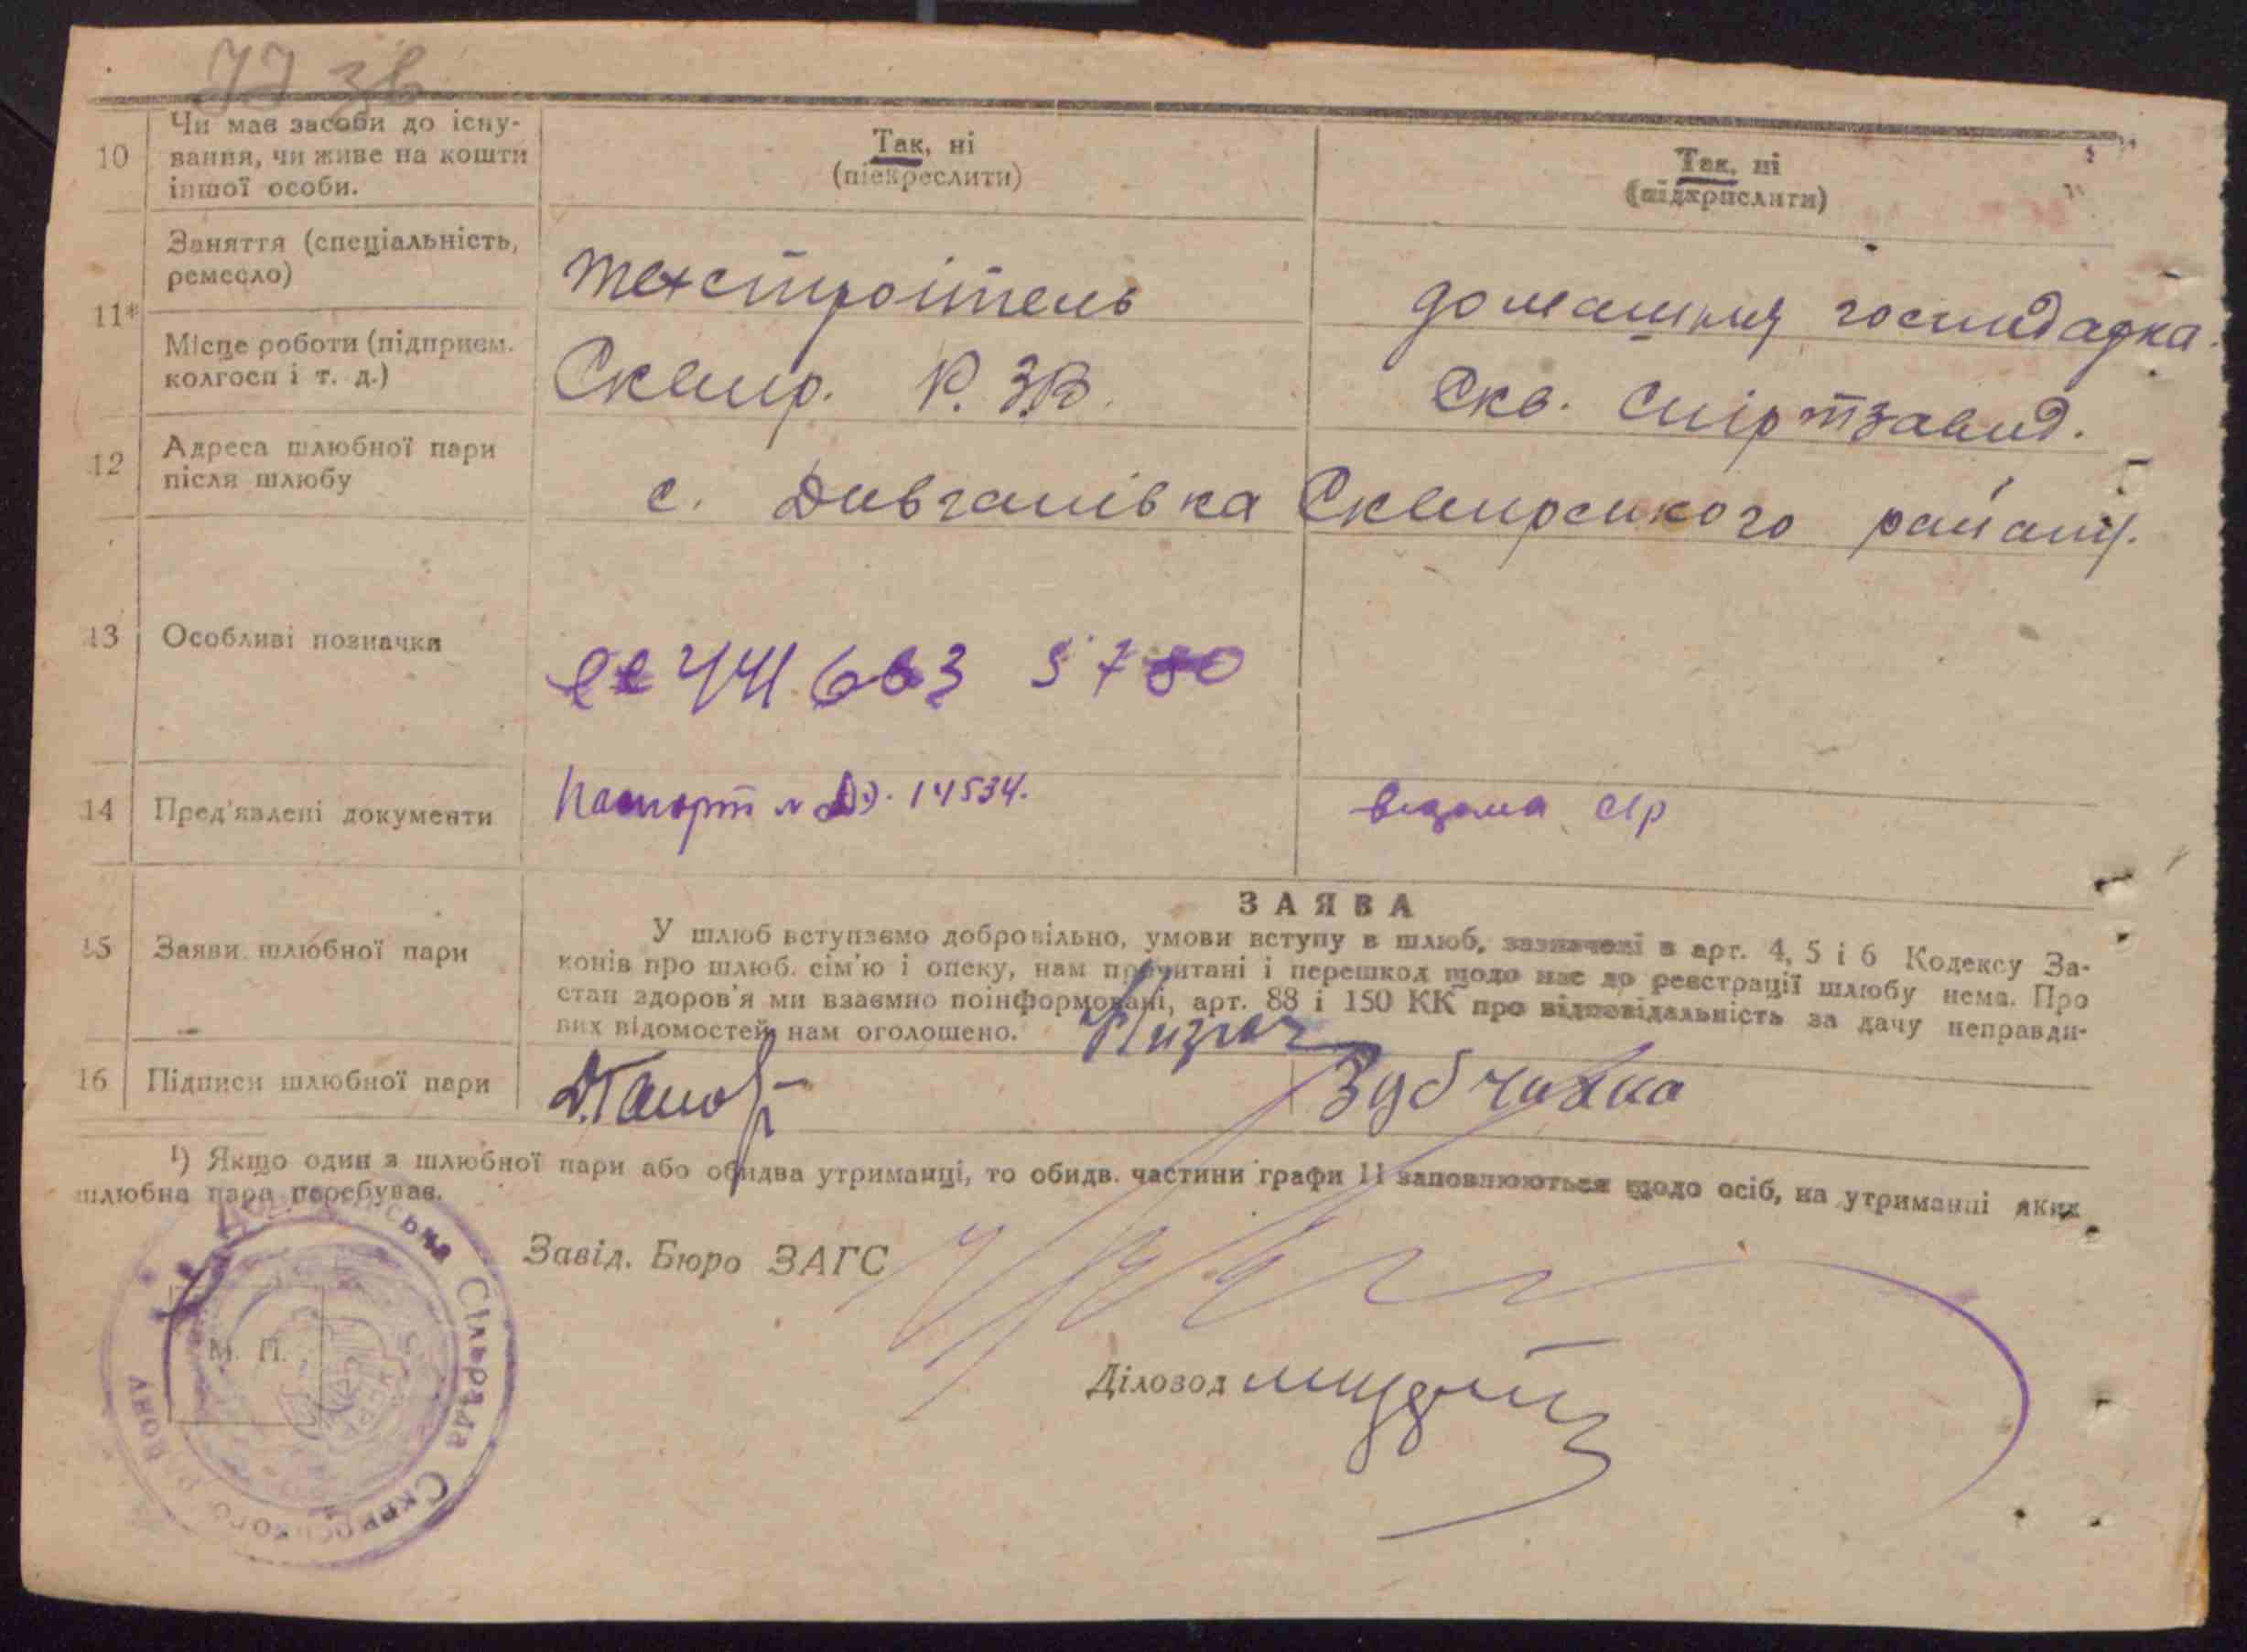 77 зв
10
Чи має засоби до існу-
вання, чи живе на кошти
іншої особи.
Так, ні
(підкреслити)
Так, ні
(підкрислити)
11*
Заняття (спеціальність,
ремесло)
техстроітель
домашня господарка.
Місце роботи (підприєм.
колгосп і т. д.)
Сквир. Р.З.В.
Скв. Спіртзавод.
12
Адреса шлюбної пари
після шлюбу
с. Довгалівка Сквирського району.
13
Особливі позначки
441 663 5780
14
Пред'явлені документи
Паспорт № 14534.
ср
15
Заяви шлюбної пари
ЗАЯВА
У шлюб вступаємо добровільно, умови вступу в шлюб, зазначені в арт. 4, 5 і 6 Кодексу За-
конів про шлюб. сім'ю і опеку, нам прочитані і перешкод щодо нас до реєстрації шлюбу нема. Про
стан здоров'я ми взаємно поінформовані, арт. 88 і 150 КК про відповідальність за дачу неправди-
вих відомостей нам оголошено.
16
Підписи шлюбної пари
¹) Якщо один з шлюбної пари або обидва утриманці, то обидв. частини графи 11 заповнюються щодо осіб, на утриманні яких
шлюбна пара перебуває.
Завід. Бюро ЗАГС
М. П.
Діловод
Сільрада Сквирського району